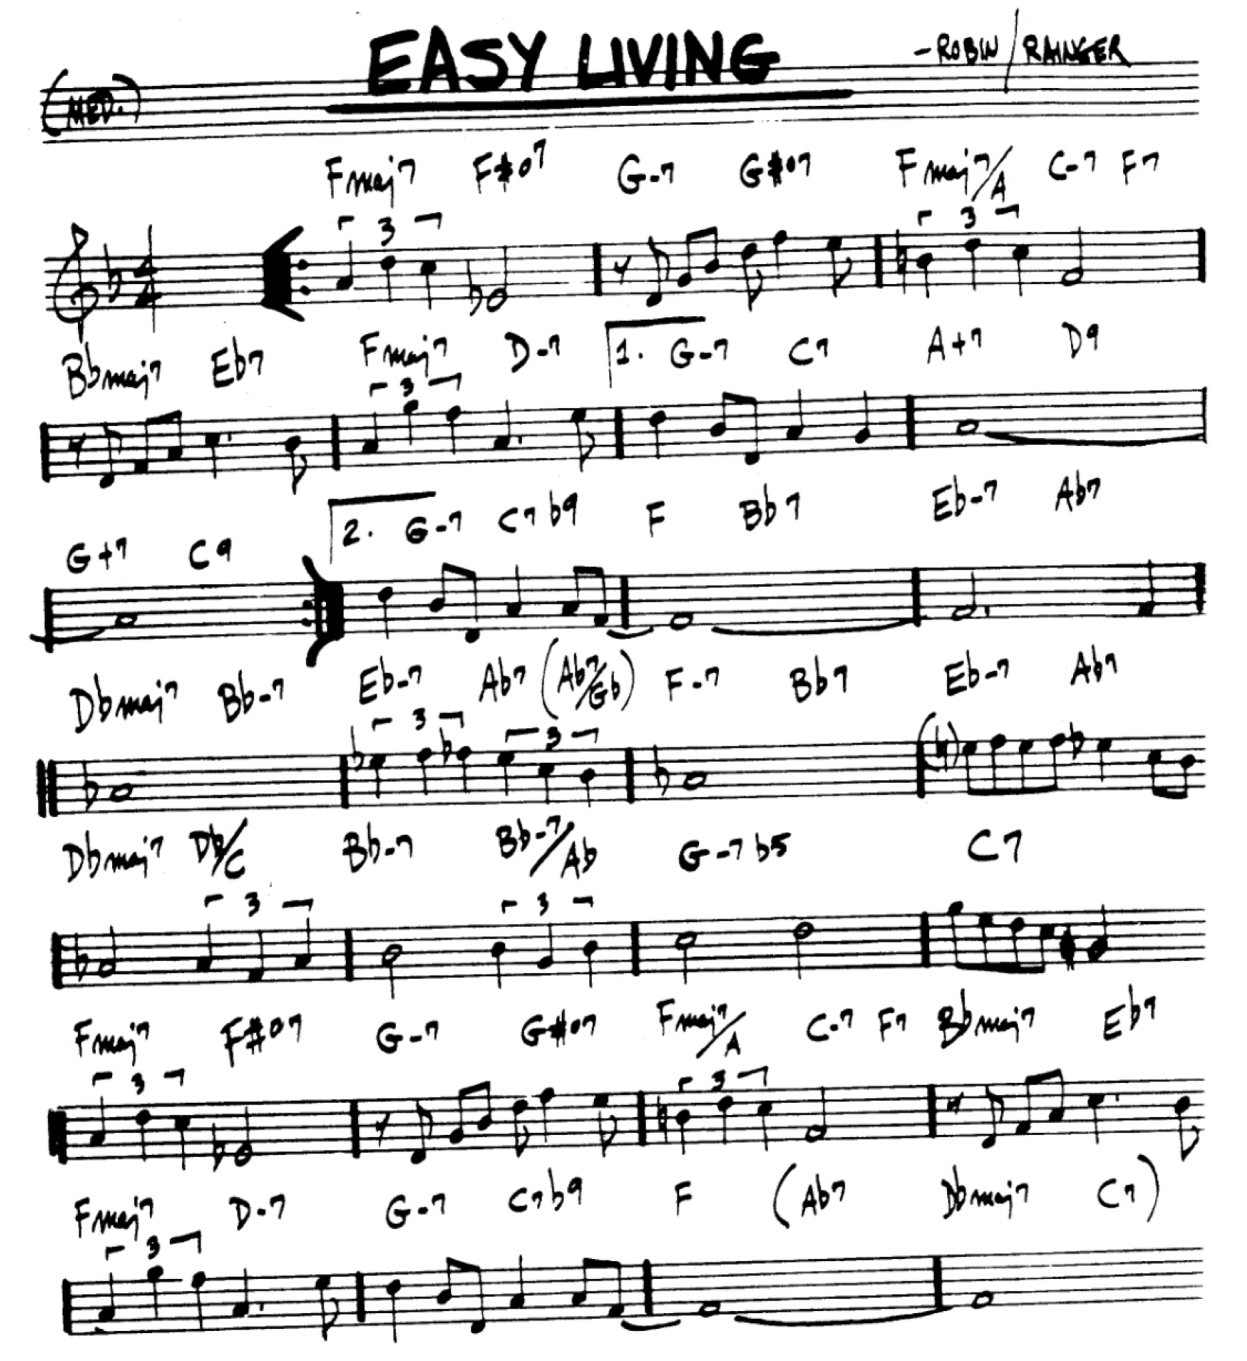 EASY LIVING
- ROBIN / RAINGER
(MED.)
Fmaj7 F#o7 G-7 G#o7 Fmaj7/A C-7 F7
3 3
4
4
Bbmaj7 Eb7 Fmaj7 D-7 1. G-7 C7 A+7 D9
3
G+7 C9 2. G-7 C7b9 F Bb7 Eb-7 Ab7
Dbmaj7 Bb-7 Eb-7 Ab7 (Ab7/Gb) F-7 Bb7 Eb-7 Ab7
3 3
Dbmaj7 Db/C Bb-7 Bb-7/Ab G-7b5 C7
3 3
Fmaj7 F#o7 G-7 G#o7 Fmaj7/A C-7 F7 Bbmaj7 Eb7
3 3
Fmaj7 D-7 G-7 C7b9 F (Ab7 Dbmaj7 C7)
3